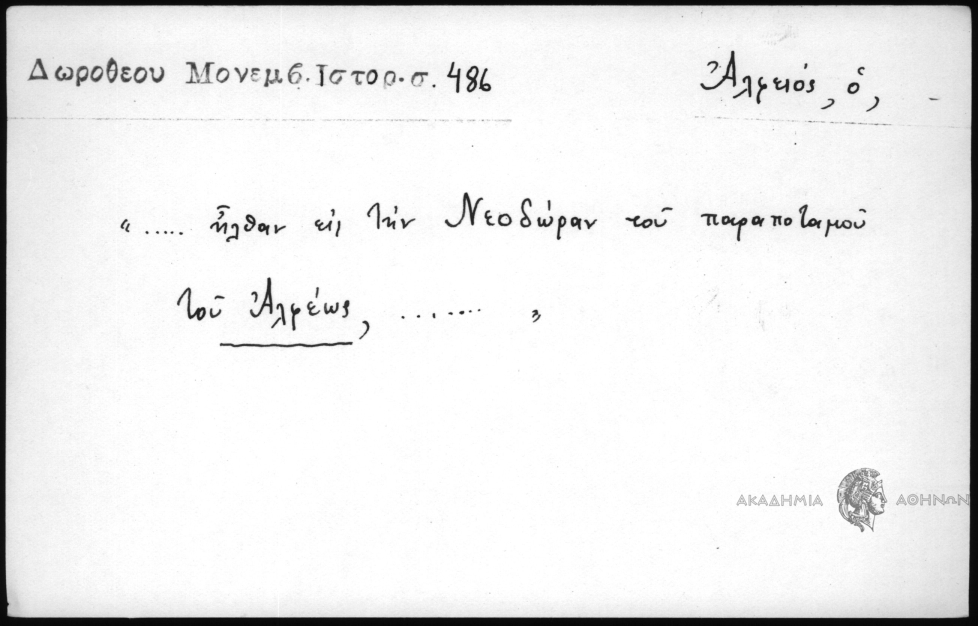 Δωροθεου Μονεμβ. Ιστορ. σ. 486
Ἀλφειός, ὁ,
“ ..... ἦλθαν εἰς τὴν Νεοδώραν τοῦ παραποταμοῦ
τοῦ Ἀλφέως, ....... ”
ΑΚΑΔΗΜΙΑ ΑΘΗΝΩΝ